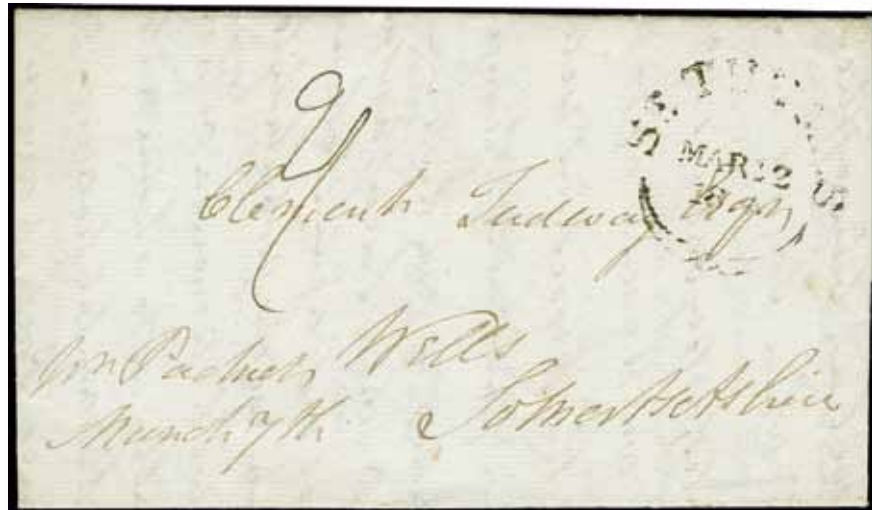 ST. THOMAS
MAR 12
2/
Clement Tudway Esqr
Wells
Somersetshire
pr Packet
March 7th